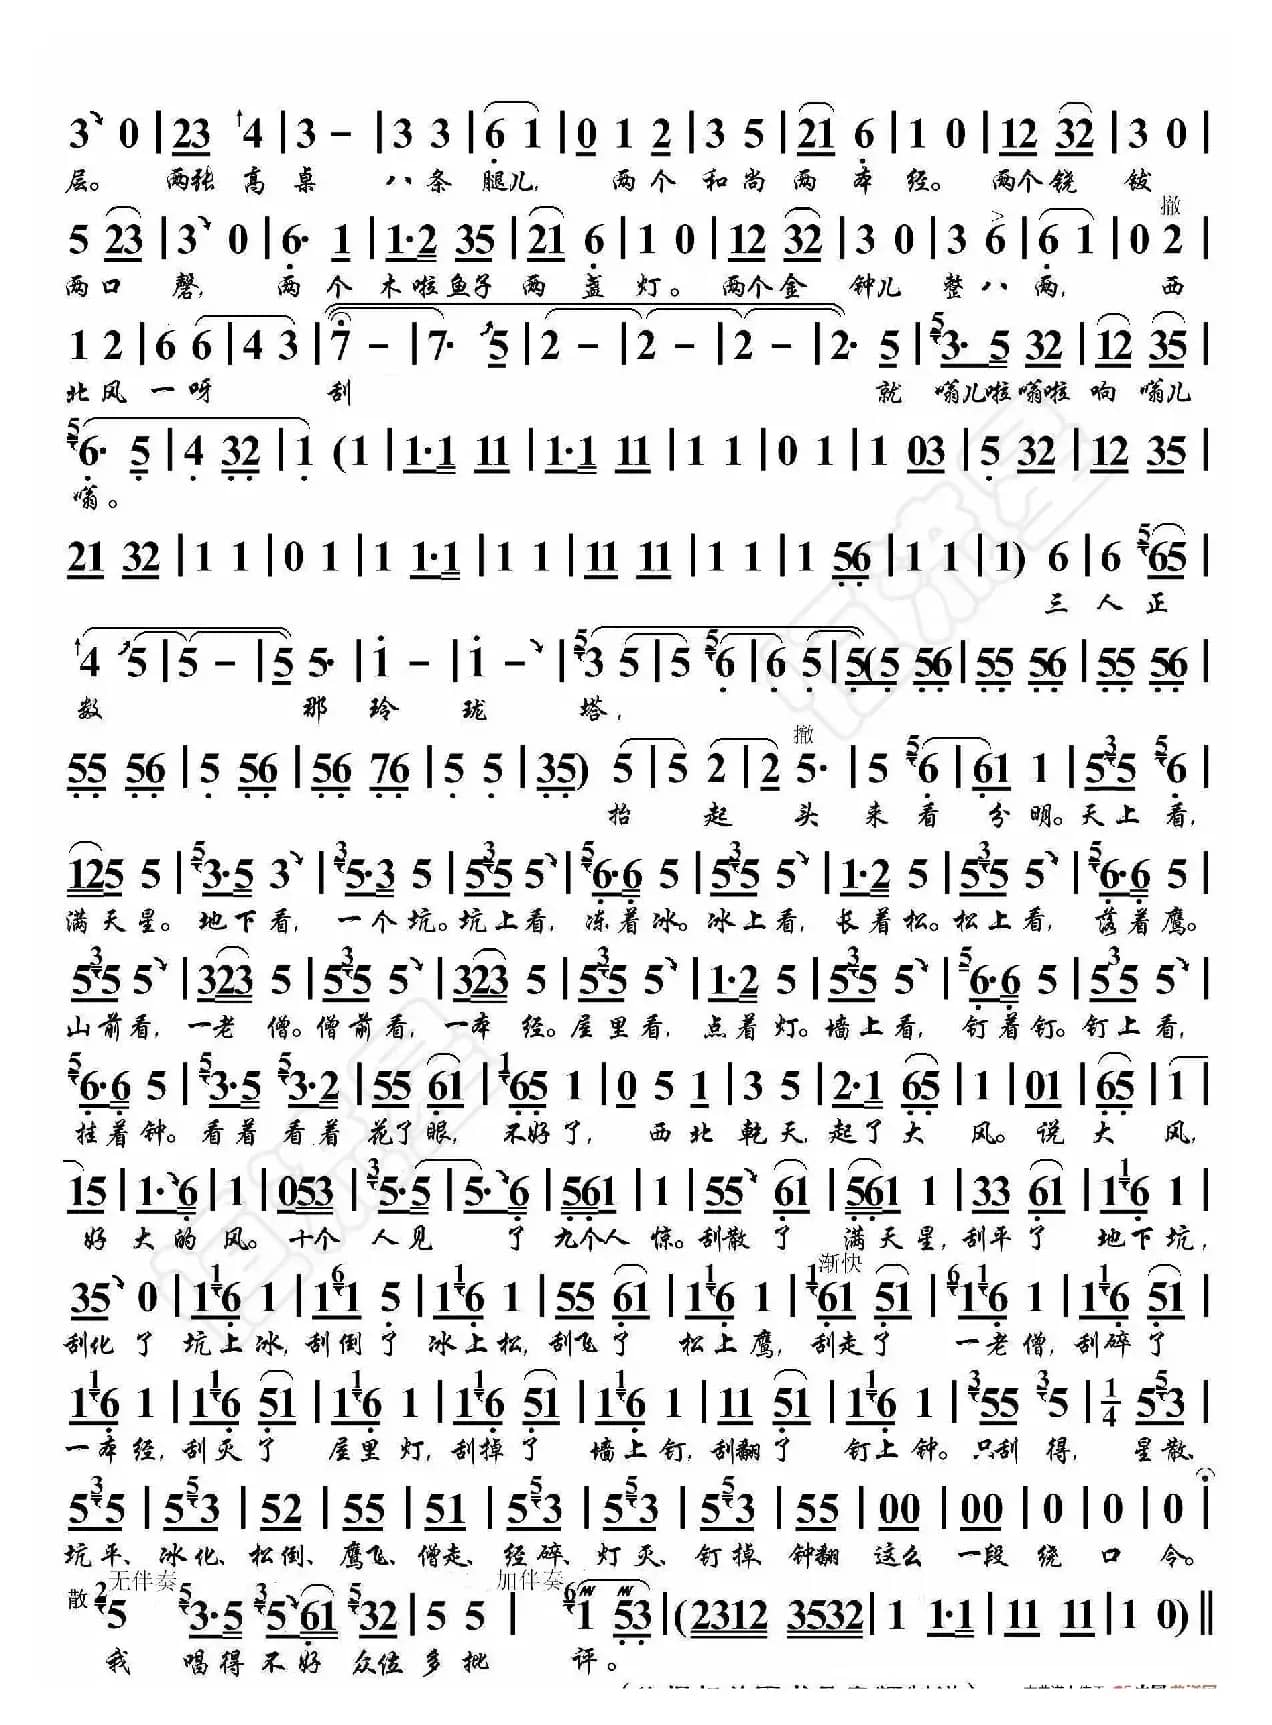 3 0 | 23 4 | 3 – | 3 3 | 6 1 | 0 1 2 | 3 5 | 21 6 | 1 0 | 12 32 | 3 0 |
层。 两张 高 桌 八 条 腿儿, 两 个 和 尚 两 本 经。 两个 铙 钹
撤
5 23 | 3 0 | 6· 1 | 1·2 35 | 21 6 | 1 0 | 12 32 | 3 0 | 3 6 | 6 1 | 0 2 |
两 口 磬, 两 个 木 啦 鱼 子 两 盏 灯。 两个 金 钟儿 整 八 两, 西
1 2 | 6 6 | 4 3 | 7 – | 7· 5 | 2 – | 2 – | 2 – | 2· 5 | 5 3· 5 32 | 12 35 |
北 风 一 呀 刮 就 嗡儿啦 嗡啦 响 嗡儿
5 6· 5 | 4 32 | 1 (1 | 1·1 11 | 1·1 11 | 1 1 | 0 1 | 1 03 | 5 32 | 12 35 |
嗡。
21 32 | 1 1 | 0 1 | 1 1·1 | 1 1 | 11 11 | 1 1 | 1 56 | 1 1 | 1) 6 | 6 5 65 |
三 人 正
4 5 | 5 – | 5 5· | 1 – | 1 – | 5 3 5 | 5 5 6 | 6 5 | 5 (5 56 | 55 56 | 55 56 |
数 那 玲 珑 塔,
撤
55 56 | 5 56 | 56 76 | 5 5 | 35) 5 | 5 2 | 2 5· | 5 5 6 | 61 1 | 5 3 5 5 6 |
抬 起 头 来 看 分 明。 天 上 看,
125 5 | 5 3·5 3 | 3 5·3 5 | 5 3 5 5 | 5 6·6 5 | 5 3 5 5 | 1·2 5 | 5 3 5 5 | 5 6·6 5 |
满 天 星。 地 下 看, 一 个 坑。 坑 上 看, 冻 着 冰。 冰 上 看, 长 着 松。 松 上 看, 落 着 鹰。
5 3 5 5 | 323 5 | 5 3 5 5 | 323 5 | 5 3 5 5 | 1·2 5 | 5 3 5 5 | 5 6·6 5 | 5 3 5 5 |
山 前 看, 一 老 僧。 僧 前 看, 一 本 经。 屋 里 看, 点 着 灯。 墙 上 看, 钉 着 钉。 钉 上 看,
5 6·6 5 | 5 3·5 5 3·2 | 55 61 | 1 65 1 | 0 5 1 | 3 5 | 2·1 65 | 1 | 01 65 | 1
挂 着 钟。 看 着 看 着 花 了 眼, 不 好 了, 西 北 乾 天, 起 了 大 风。 说 大 风,
15 | 1· 6 | 1 | 053 | 3 5·5 | 5· 6 | 561 | 1 | 55 61 | 561 1 | 33 61 | 1 1 6 1 |
好 大 的 风。 十 个 人 见 了 九个人 惊。 刮 散 了 满 天 星, 刮 平 了 地 下 坑,
渐快
35 0 | 1 1 6 1 | 1 6 1 5 | 1 1 6 1 | 55 61 | 1 1 6 1 | 1 61 51 | 6 1 1 6 1 | 1 1 6 51 |
刮 化 了 坑 上 冰, 刮 倒 了 冰 上 松, 刮 飞 了 松 上 鹰, 刮 走 了 一 老 僧, 刮 碎 了
1 1 6 1 | 1 1 6 51 | 1 1 6 1 | 1 1 6 51 | 1 1 6 1 | 11 1 1 6 | 1 1 6 1 | 3 55 3 5 | 1/4 5 5 3 |
一 本 经, 刮 灭 了 屋 里 灯, 刮 掉 了 墙 上 钉, 刮 翻 了 钉 上 钟。 只 刮 得, 星 散、
5 3 5 | 5 5 3 | 52 | 55 | 51 | 5 5 3 | 5 5 3 | 5 5 3 | 55 | 00 | 00 | 0 | 0 | 0 |
坑 平、 冰 化、 松 倒、 鹰 飞、 僧 走、 经 碎、 灯 灭、 钉 掉、 钟 翻 这 么 一 段 绕 口 令。
无伴奏 加伴奏
散 2 5 5 3·5 5 5 61 5 32 | 5 5 | 6 1 53 | (2312 3532 | 1 1·1 | 11 11 | 1 0) ‖
我 唱 得 不 好 众 位 多 批 评。